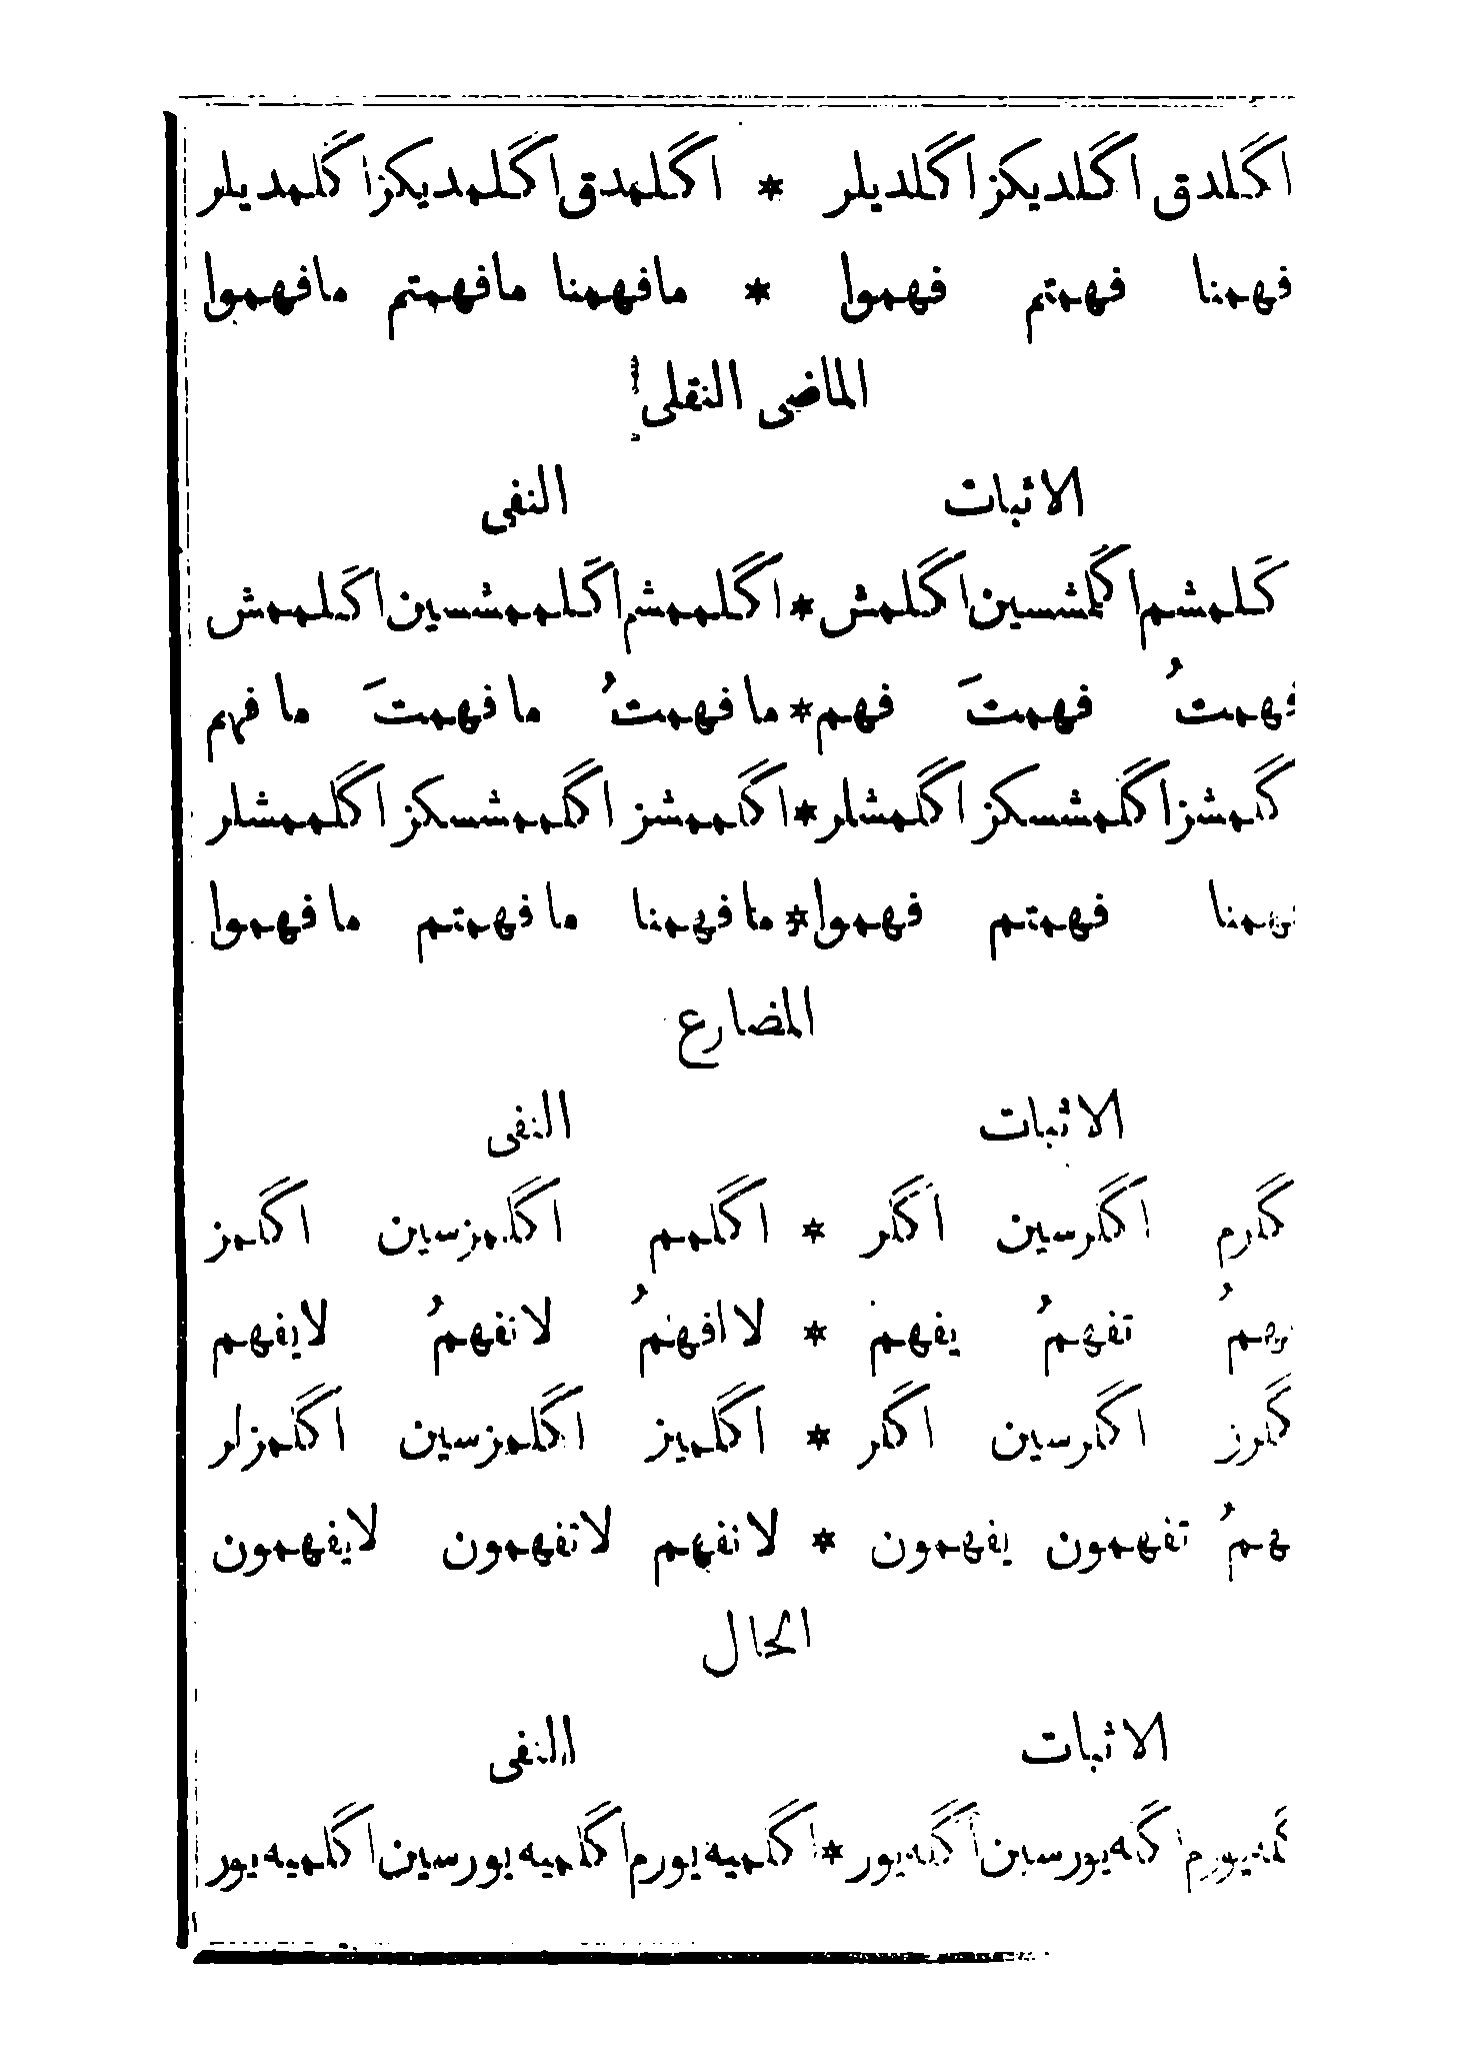 اگلدق اگلدیکز اگلدیلر * اگلمدق اگلمدیکز اگلمدیلر
فهمنا فهمتم فهموا * مافهمنا مافهمتم مافهموا
الماضى النقلى
الاثبات النفى
گلمشم اگلمشسین اگلمش * اگلممشم اگلممشسین اگلممش
فهمتُ فهمتَ فهم * مافهمتُ مافهمتَ مافهم
گلمشز اگلمشسکز اگلمشلر * اگلممشز اگلممشسکز اگلممشلر
فهمنا فهمتم فهموا * مافهمنا مافهمتم مافهموا
المضارع
الاثبات النفى
گلرم اگلرسین اگلر * اگلمم اگلمزسین اگلمز
تفهمُ یفهم * لاافهمُ لاتفهمُ لایفهم
گلرز اگلرسین اگلر * اگلمیز اگلمزسین اگلمزلر
تفهمون یفهمون * لانفهم لاتفهمون لایفهمون
الحال
الاثبات النفى
اگلەیورسین اگلەیور * اگلمیەیورم اگلمیەیورسین اگلمیەیور